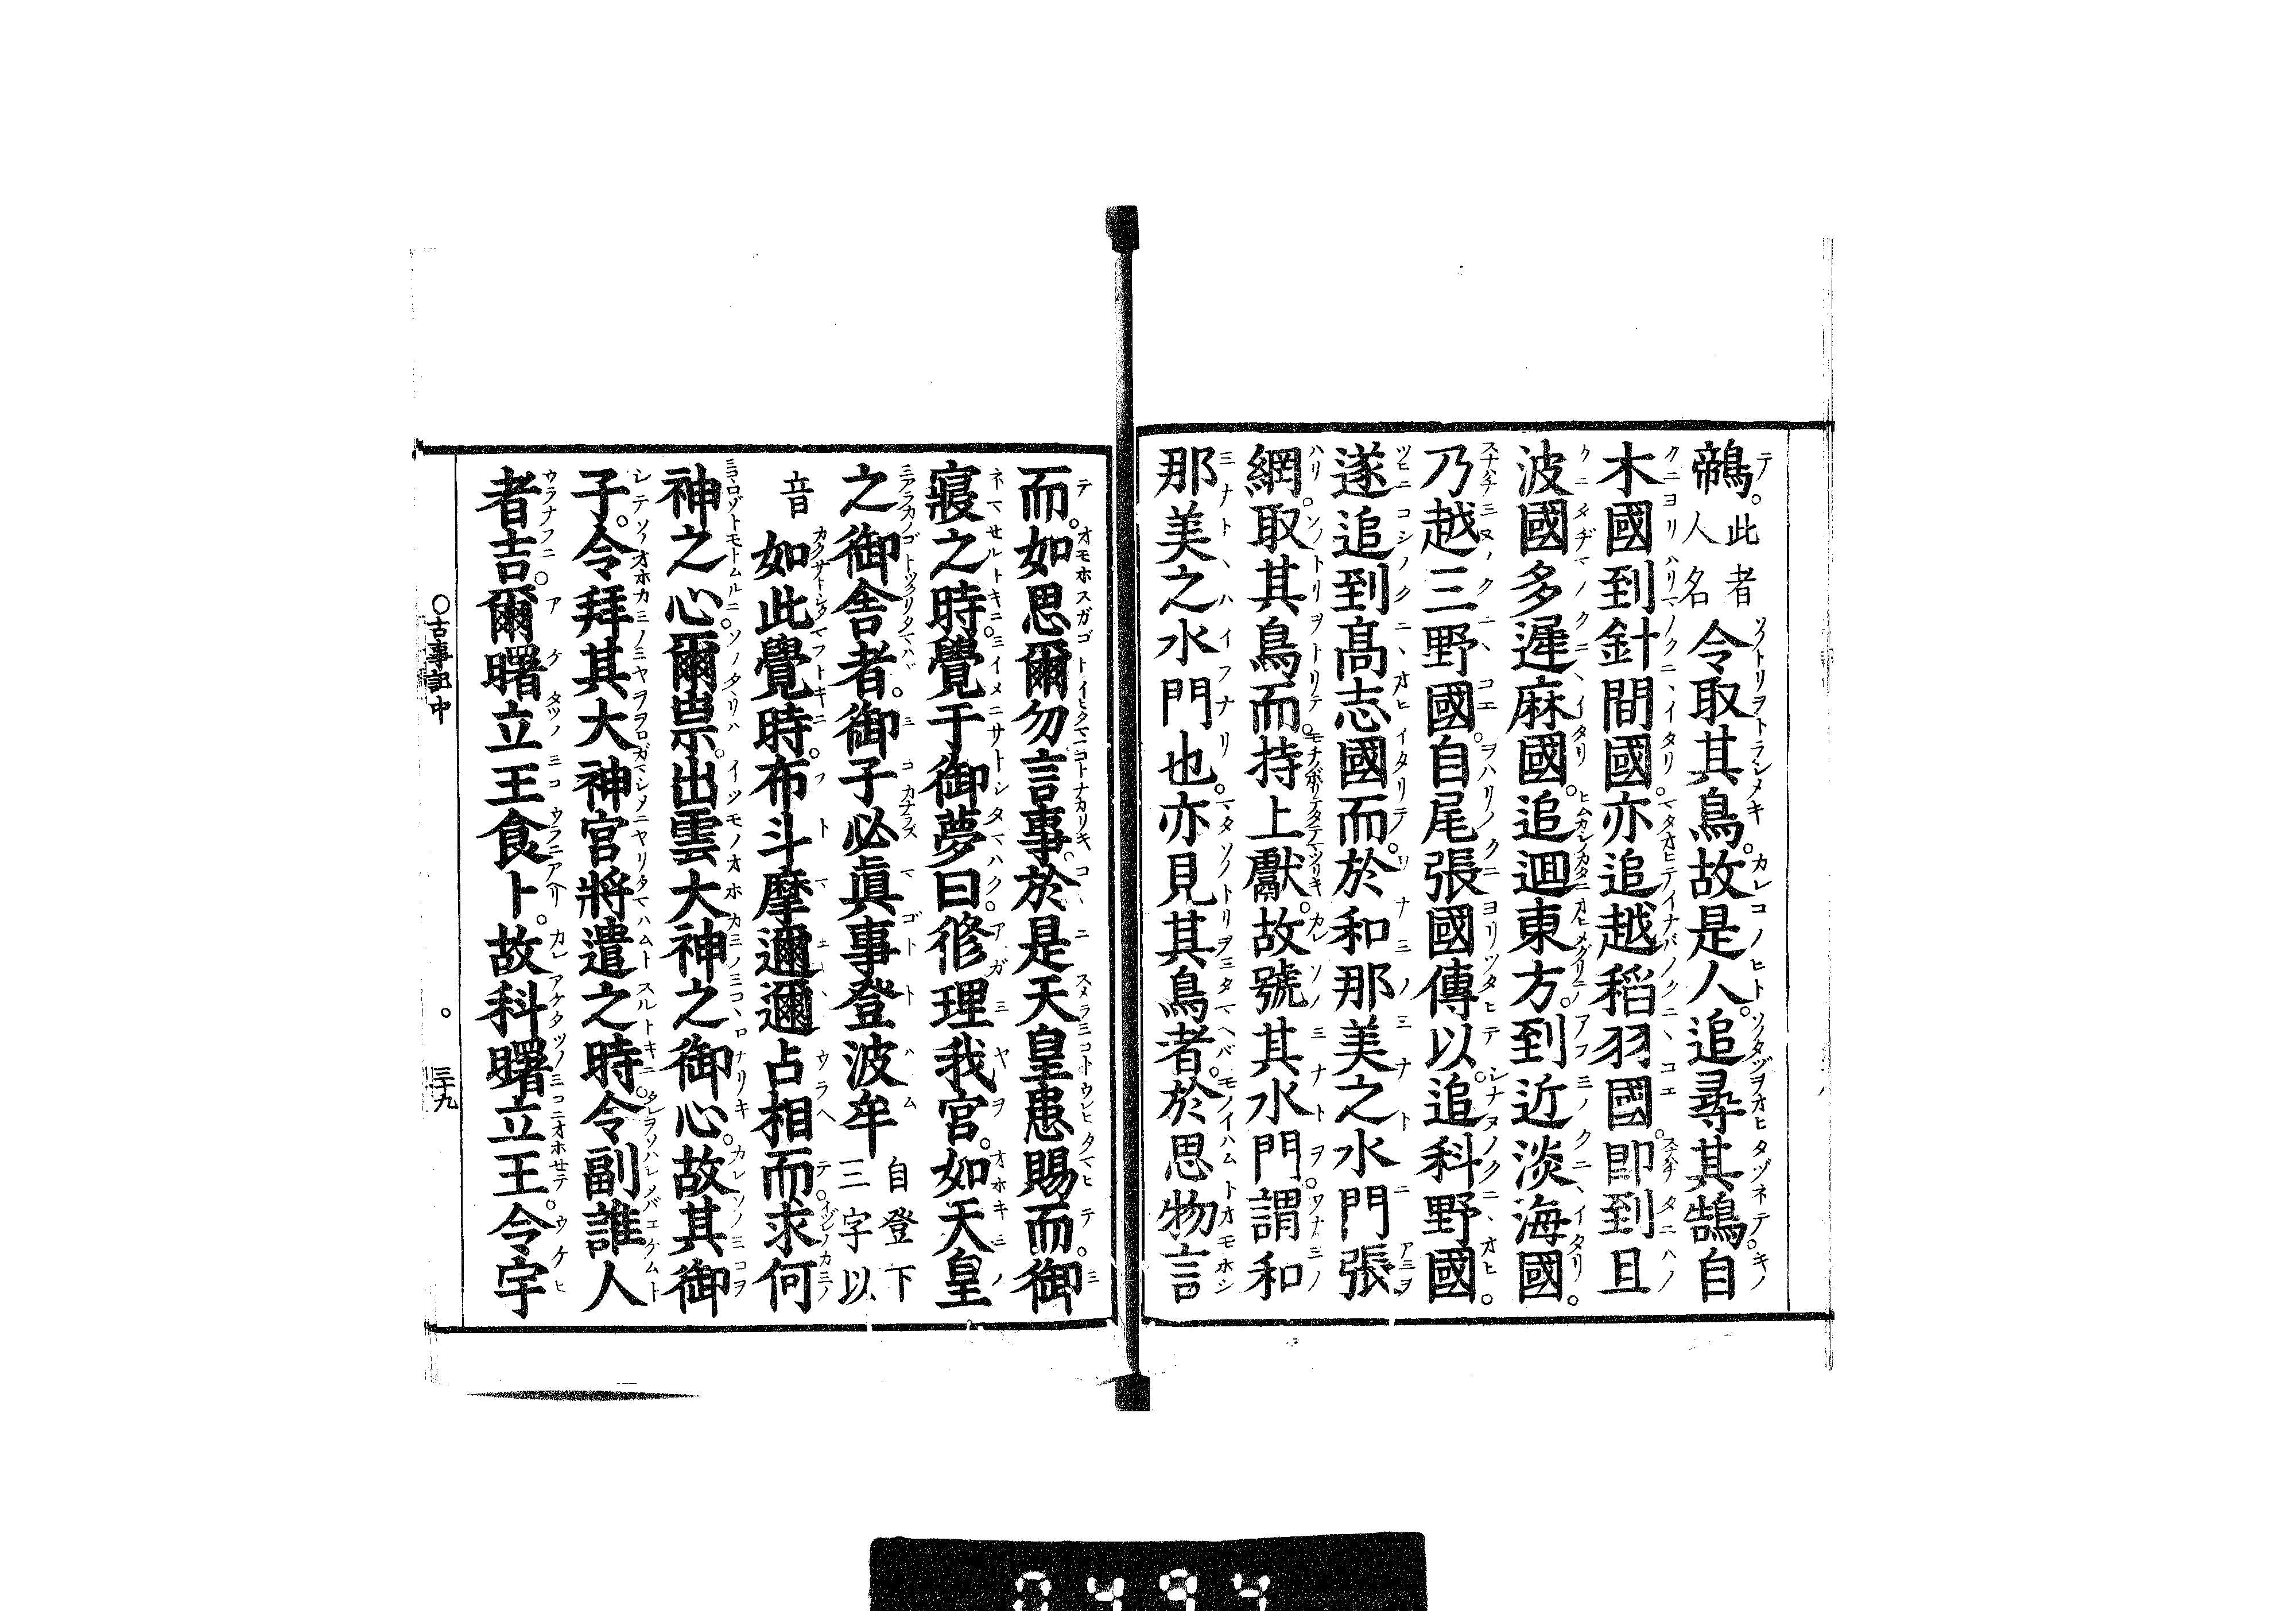 鶙此者人名令取其鳥故是人追尋其鵠自
木國到針間國亦追越稻羽國即到旦
波國多遲麻國追迴東方到近淡海國
乃越三野國自尾張國傳以追科野國
遂追到高志國而於和那美之水門張
網取其鳥而持上獻故號其水門謂和
那美之水門也亦見其鳥者於思物言
而如思爾勿言事於是天皇患賜而御
寢之時覺于御夢曰修理我宮如天皇
之御舍者御子必眞事登波牟自登下三字以
音如此覺時布斗摩邇邇占相而求何
神之心爾祟出雲大神之御心故其御
子令拜其大神宮將遣之時令副誰人
者吉爾曙立王食卜故科曙立王令宇
○古事記中 三十九